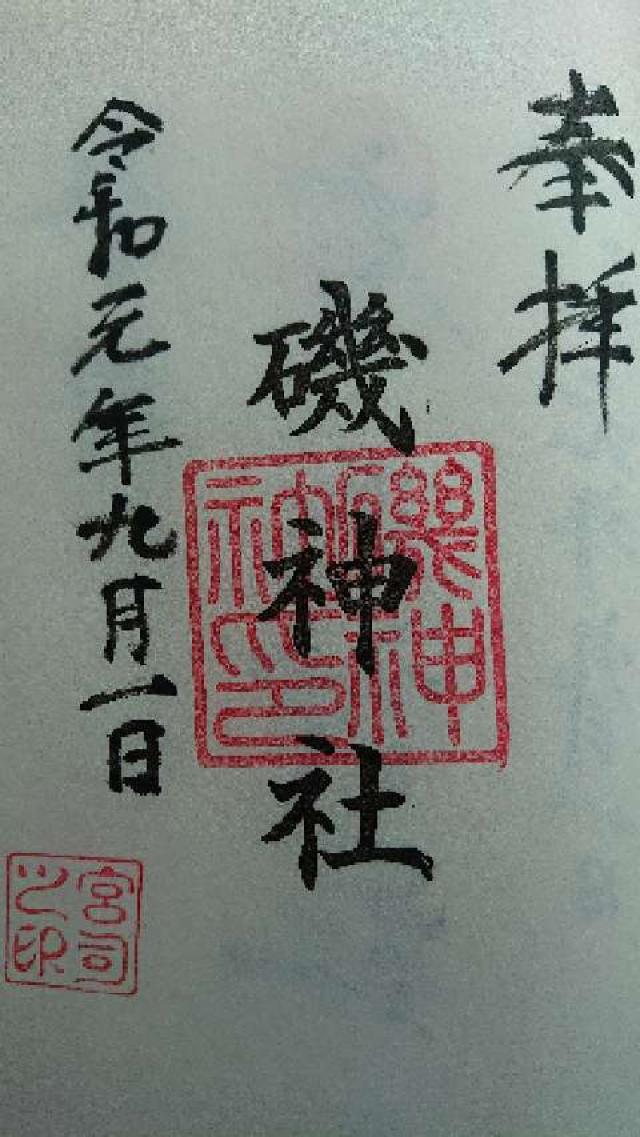 奉拝
磯神社
磯神社印
令和元年九月一日
宮司之印